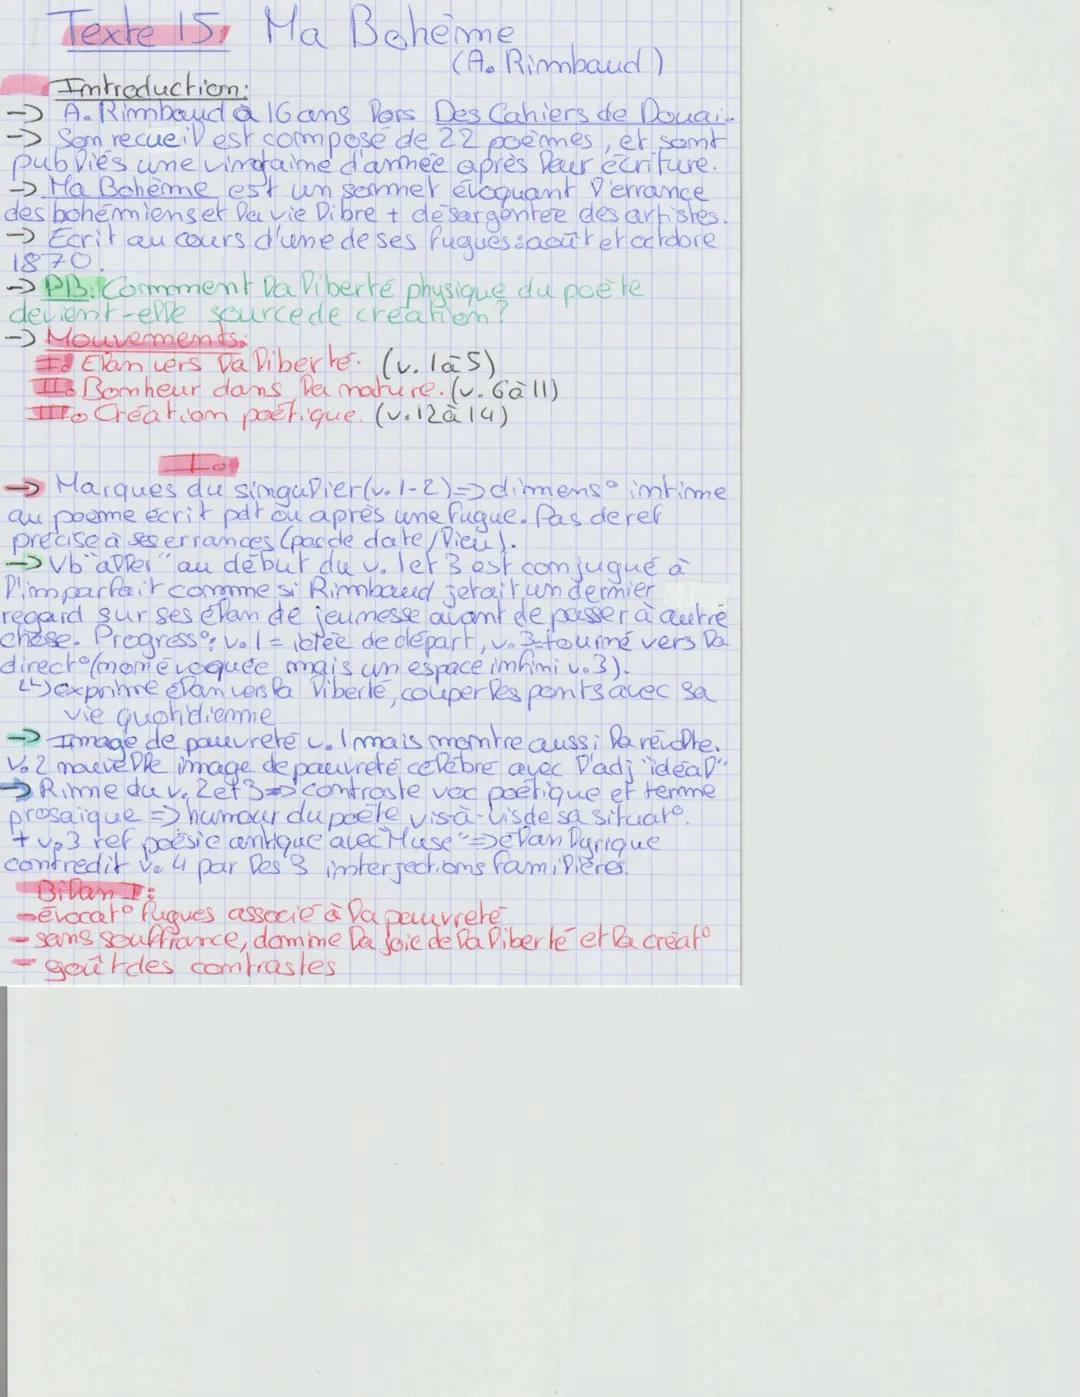 Texte 15: Ma Bohème
(A. Rimbaud)
Introduction:
-> A. Rimbaud a 16 ans lors Des Cahiers de Douai.
-> Son recueil est composé de 22 poèmes, et sont
publiés une vingtaine d'année après leur écriture.
-> Ma Bohème est un sonnet évoquant l'errance
des bohémiens et la vie libre + désargentée des artistes.
-> Ecrit au cours d'une de ses fugues : août et octobre
1870.
-> PB: Comment la liberté physique du poète
devient-elle source de création?
-> Mouvements:
I. Elan vers la liberté. (v. 1 à 5)
II. Bonheur dans la nature. (v. 6 à 11)
III. Création poétique. (v. 12 à 14)
I.
-> Marques du singulier (v. 1-2) => dimens° intime
au poème écrit pdt ou après une fugue. Pas de ref
précise à ses errances (pas de date/lieu).
-> Vb "aller" au début du v. 1 et 3 est conjugué à
l'imparfait comme si Rimbaud jetait un dernier
regard sur ses élan de jeunesse avant de passer à autre
chose. Progress°: v. 1 = idée de départ, v. 3 tourné vers la
direct° (non évoquée mais un espace infini v. 3).
↳ exprime élan vers la liberté, couper les ponts avec sa
vie quotidienne
-> Image de pauvreté v. 1 mais montre aussi la révolte.
V. 2 nouvelle image de pauvreté célèbre avec l'adj "idéal"
-> Rime du v. 2 et 3 => contraste voc poétique et terme
prosaïque => humour du poète vis-à-vis de sa situat°.
+ v. 3 ref poésie antique avec "Muse" => élan lyrique
contredit v. 4 par les 3 interjections familières.
Bilan I:
- évocat° fugues associé à la pauvreté
- sans souffrance, domine la joie de la liberté et la créat°
- goût des contrastes